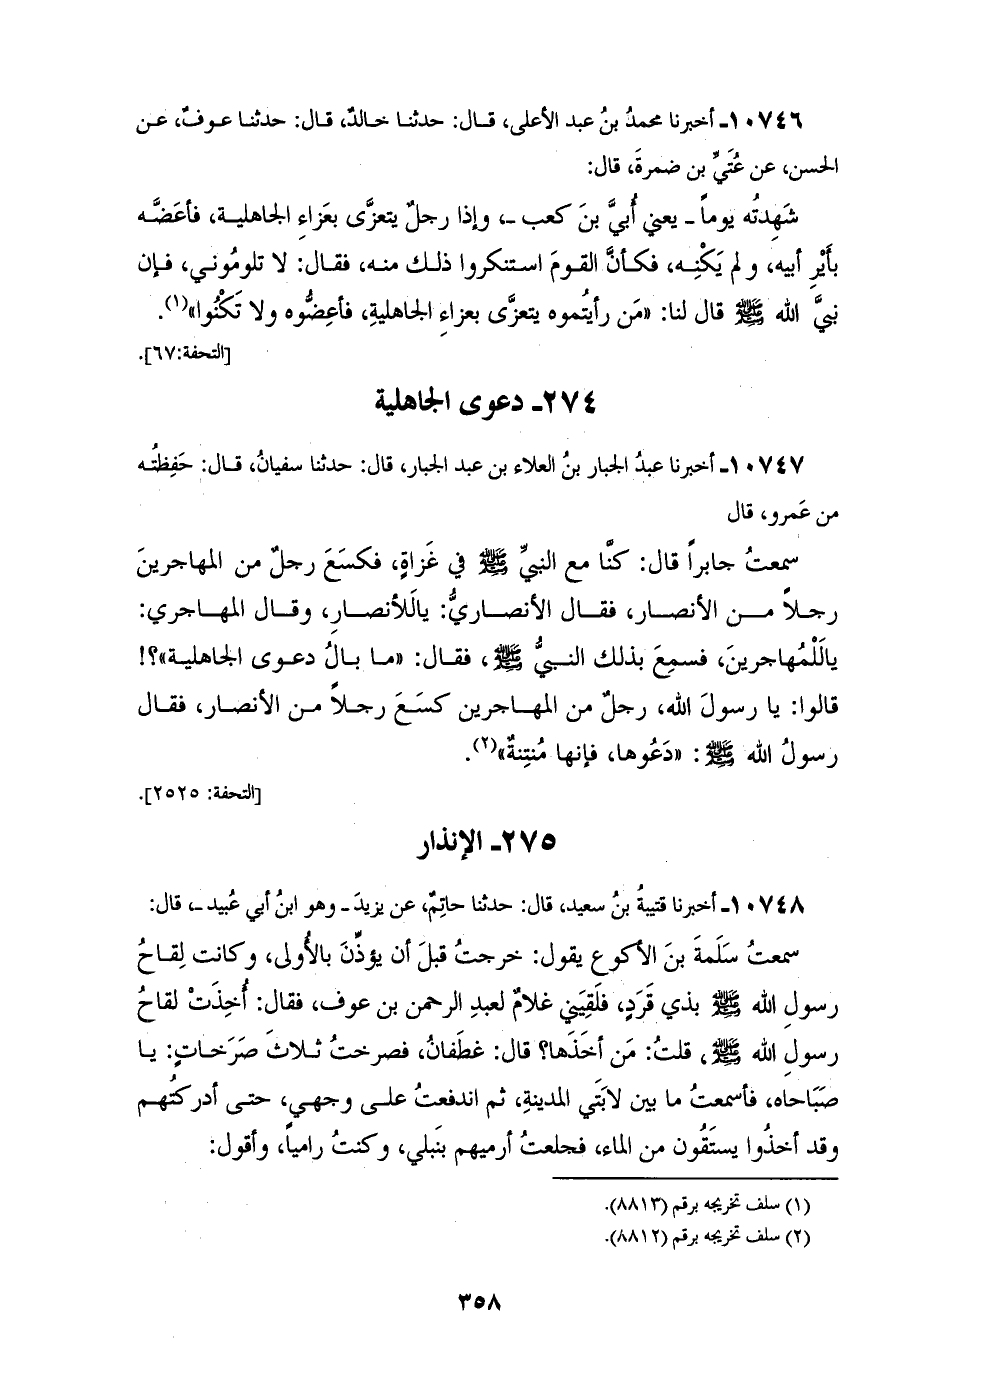 ١٠٧٤٦ـ أخبرنا محمدُ بنُ عبد الأعلى، قـال: حدثنـا خـالدٌ، قـال: حدثنـا عـوفٌ، عـن
الحسن، عن عُتَيِّ بن ضمرةَ، قال:
شَهِدتُه يوماً ـ يعني أُبيَّ بنَ كعب ـ، وإذا رجلٌ يتعزَّى بعَزاءِ الجاهليـة، فأعَضَّـه
بأَيْرِ أبيه، ولم يَكْنِـه، فكـأنَّ القومَ استنكروا ذلـك منـه، فقـال: لا تلومُونـي، فـإن
نبيَّ الله ﷺ قال لنا: «مَن رأيتُموه يتعزَّى بعزاءِ الجاهليةِ، فأعِضُّوه ولا تَكْنُوا»(١).
[التحفة:٦٧].
٢٧٤ـ دعوى الجاهلية
١٠٧٤٧ـ أخبرنا عبدُ الجبار بنُ العلاء بن عبد الجبار، قال: حدثنا سفيانُ، قـال: حَفِظتُـه
من عَمرو، قال
سمعتُ جابراً قال: كنَّا مع النبيِّ ﷺ في غَزاةٍ، فكسَعَ رجلٌ من المهاجرينَ
رجـلاً مـــن الأنصــار، فقــال الأنصــاريُّ: يالَلأنصــارِ، وقــال المهــاجري:
يالَلْمُهاجرينَ، فسمِعَ بذلك النـبيُّ ﷺ، فقـال: «مـا بـالُ دعـوى الجاهليـة»؟!
قالوا: يا رسولَ الله، رجلٌ من المهـاجرين كسَـعَ رجـلاً مـن الأنصـار، فقـال
رسولُ الله ﷺ: «دَعُوها، فإنها مُنتِنةٌ»(٢).
[التحفة: ٢٥٢٥].
٢٧٥ـ الإنذار
١٠٧٤٨ـ أخبرنا قتيبةُ بنُ سعيد، قال: حدثنا حاتِمٌ، عن يزيدَ ـ وهو ابنُ أبي عُبيد ـ، قال:
سمعتُ سَلَمةَ بنَ الأكوع يقول: خرجتُ قبلَ أن يؤذِّنَ بالأُولى، وكانت لِقاحُ
رسولِ الله ﷺ بذي قَرَدٍ، فلَقِيَني غلامٌ لعبدِ الرحمن بن عوف، فقال: أُخِذَتْ لقاحُ
رسولِ الله ﷺ، قلتُ: مَن أخَذَها؟ قال: غطَفانُ، فصرختُ ثـلاثَ صَرَخـاتٍ: يـا
صَبَاحاه، فأسمعتُ ما بين لابَتَي المدينةِ، ثم اندفعتُ علـى وجهي، حتـى أدركتُهـم
وقد أخذُوا يستَقُون من الماء، فجعلتُ أرميهم بنَبلي، وكنتُ رامياً، وأقول:
(١) سلف تخريجه برقم (٨٨١٣).
(٢) سلف تخريجه برقم (٨٨١٢).
٣٥٨